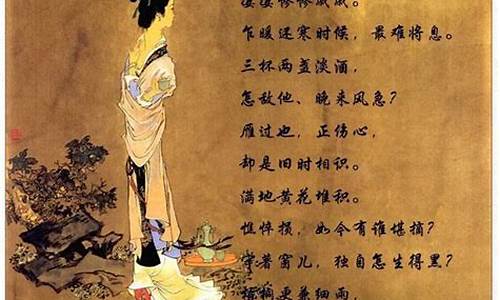 凄凄惨惨戚戚。
乍暖还寒时候，最难将息。
三杯两盏淡酒，
怎敌他、晚来风急？
雁过也，正伤心，
却是旧时相识。
满地黄花堆积。
憔悴损，如今有谁堪摘？
守著窗儿，独自怎生得黑？
梧桐更兼细雨，